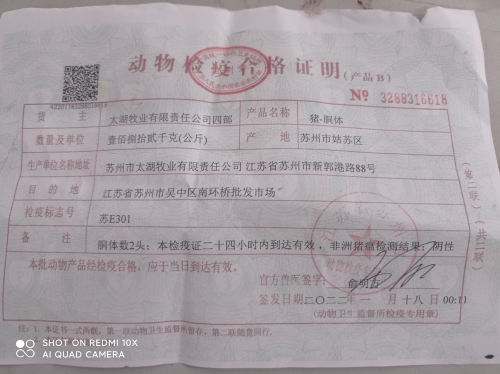 动物检疫合格证明(产品B)
№ 3288316618
货主 太湖牧业有限责任公司四部 产品名称 猪-胴体
数量及单位 壹佰捌拾贰千克(公斤) 产地 苏州市姑苏区
生产单位名称地址 苏州市太湖牧业有限责任公司 江苏省苏州市新郭港路88号
目的地 江苏省苏州市吴中区南环桥批发市场
检疫标志号 苏E301
备注 胴体数2头；本检疫证二十四小时内到达有效，非洲猪瘟检测结果：阴性
本批动物产品经检疫合格，应于当日到达有效。
官方兽医签字：
签发日期二〇二二年 一 月 十八 日 00:11
(动物卫生监督所检疫专用章)
注：1. 本证书一式两联，第一联动物卫生监督所留存，第二联随货同行。
(第二联)
(共二联)
SHOT ON REDMI 10X
AI QUAD CAMERA